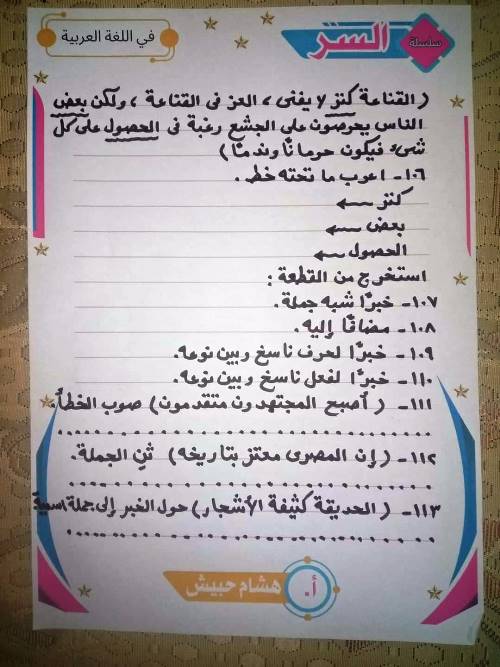 سلسلة السر
في اللغة العربية
( القناعة كنز لا يفنى ، العز فى القناعة ، ولكن بعض
الناس يحرصون على الجشع رغبة فى الحصول على كل
شىء فيكون حرمانًا وندمًا )
١٠٦- اعرب ما تحته خط .
كنز ←
بعض ←
الحصول ←
استخرج من القطعة :
١٠٧- خبرًا شبه جملة .
١٠٨- مضافًا إليه .
١٠٩- خبرًا لحرف ناسخ وبين نوعه .
١١٠- خبرًا لفعل ناسخ وبين نوعه .
١١١- ( أصبح المجتهدون متقدمون ) صوب الخطأ .
١١٢- ( إن المصرى معتز بتاريخه ) ثنِ الجملة .
١١٣- ( الحديقة كثيفة الأشجار ) حول الخبر إلى جملة اسمية
أ. هشام حبيش